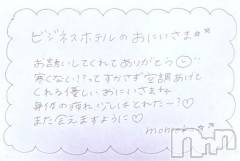 ビジネスホテルのおにいさま☆☆
お誘いしてくれてありがとう
寒くない!?ってすかさず空調あげて
くれる優しいおにいさま
身体の疲れ、少しはとれた〜?♡
また会えますように♡